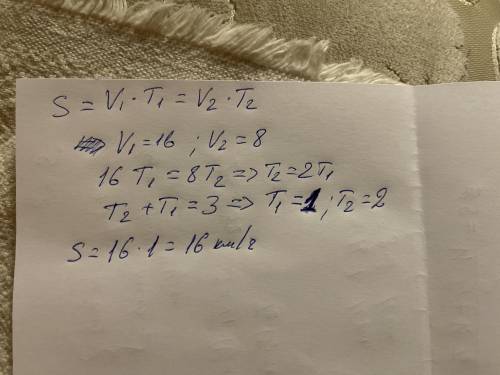 S = V₁ · T₁ = V₂ · T₂
V₁ = 16 ; V₂ = 8
16 T₁ = 8 T₂ => T₂ = 2T₁
T₂ + T₁ = 3 => T₁ = 1 ; T₂ = 2
S = 16 · 1 = 16 км/г